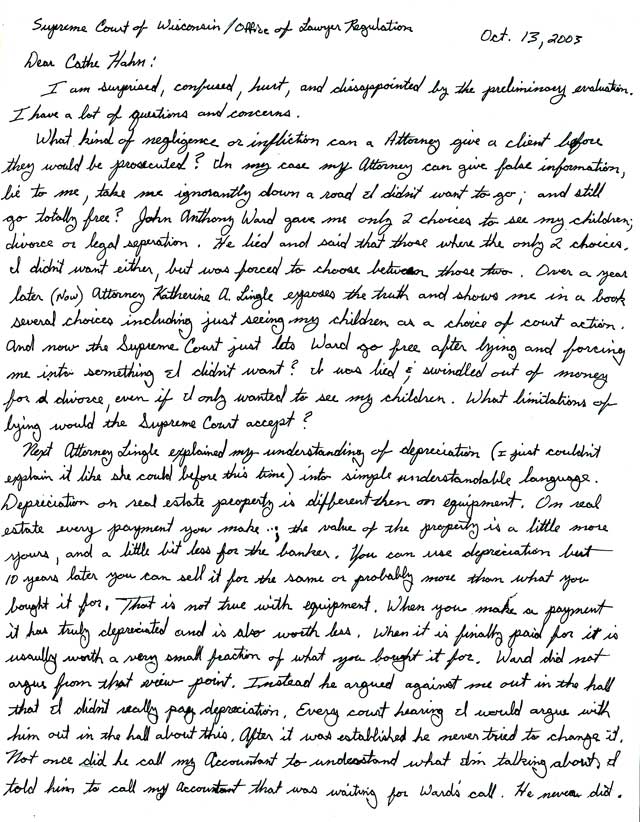 Supreme Court of Wisconsin/Office of Lawyer Regulation
Oct. 13, 2003
Dear Cathe Hahn:
I am surprised, confused, hurt, and dissapointed by the preliminary evaluation.
I have a lot of questions and concerns.
What kind of negligence or infliction can a Attorney give a client before
they would be prosecuted? In my case my Attorney can give false information,
lie to me, take me ignorantly down a road I didn't want to go; and still
go totally free? John Anthony Ward gave me only 2 choices to see my children;
divorce or legal seperation. He lied and said that those where the only 2 choices.
I didn't want either, but was forced to choose between those two. Over a year
later (Now) Attorney Katherine A. Lingle exposes the truth and shows me in a book
several choices including just seeing my children as a choice of court action.
And now the Supreme Court just lets Ward go free after lying and forcing
me into something I didn't want? I was lied & swindled out of money
for a divorce, even if I only wanted to see my children. What limitations of
lying would the Supreme Court accept?
Next Attorney Lingle explained my understanding of depreciation (I just couldn't
explain it like she could before this time) into simple understandable language.
Depreciation on real estate property is different then on equipment. On real
estate every payment you make ; the value of the property is a little more
yours, and a little bit less for the banker. You can use depreciation but
10 years later you can sell it for the same or probably more than what you
bought it for. That is not true with equipment. When you make a payment
it has truly depreciated and is also worth less. When it is finally paid for it is
usaully worth a very small fraction of what you bought it for. Ward did not
argue from that view point. Instead he argued against me out in the hall
that I didn't really pay depreciation. Every court hearing I would argue with
him out in the hall about this. After it was established he never tried to change it.
Not once did he call my Accountant to understand what I'm talking about. I
told him to call my Accountant that was waiting for Ward's call. He never did.